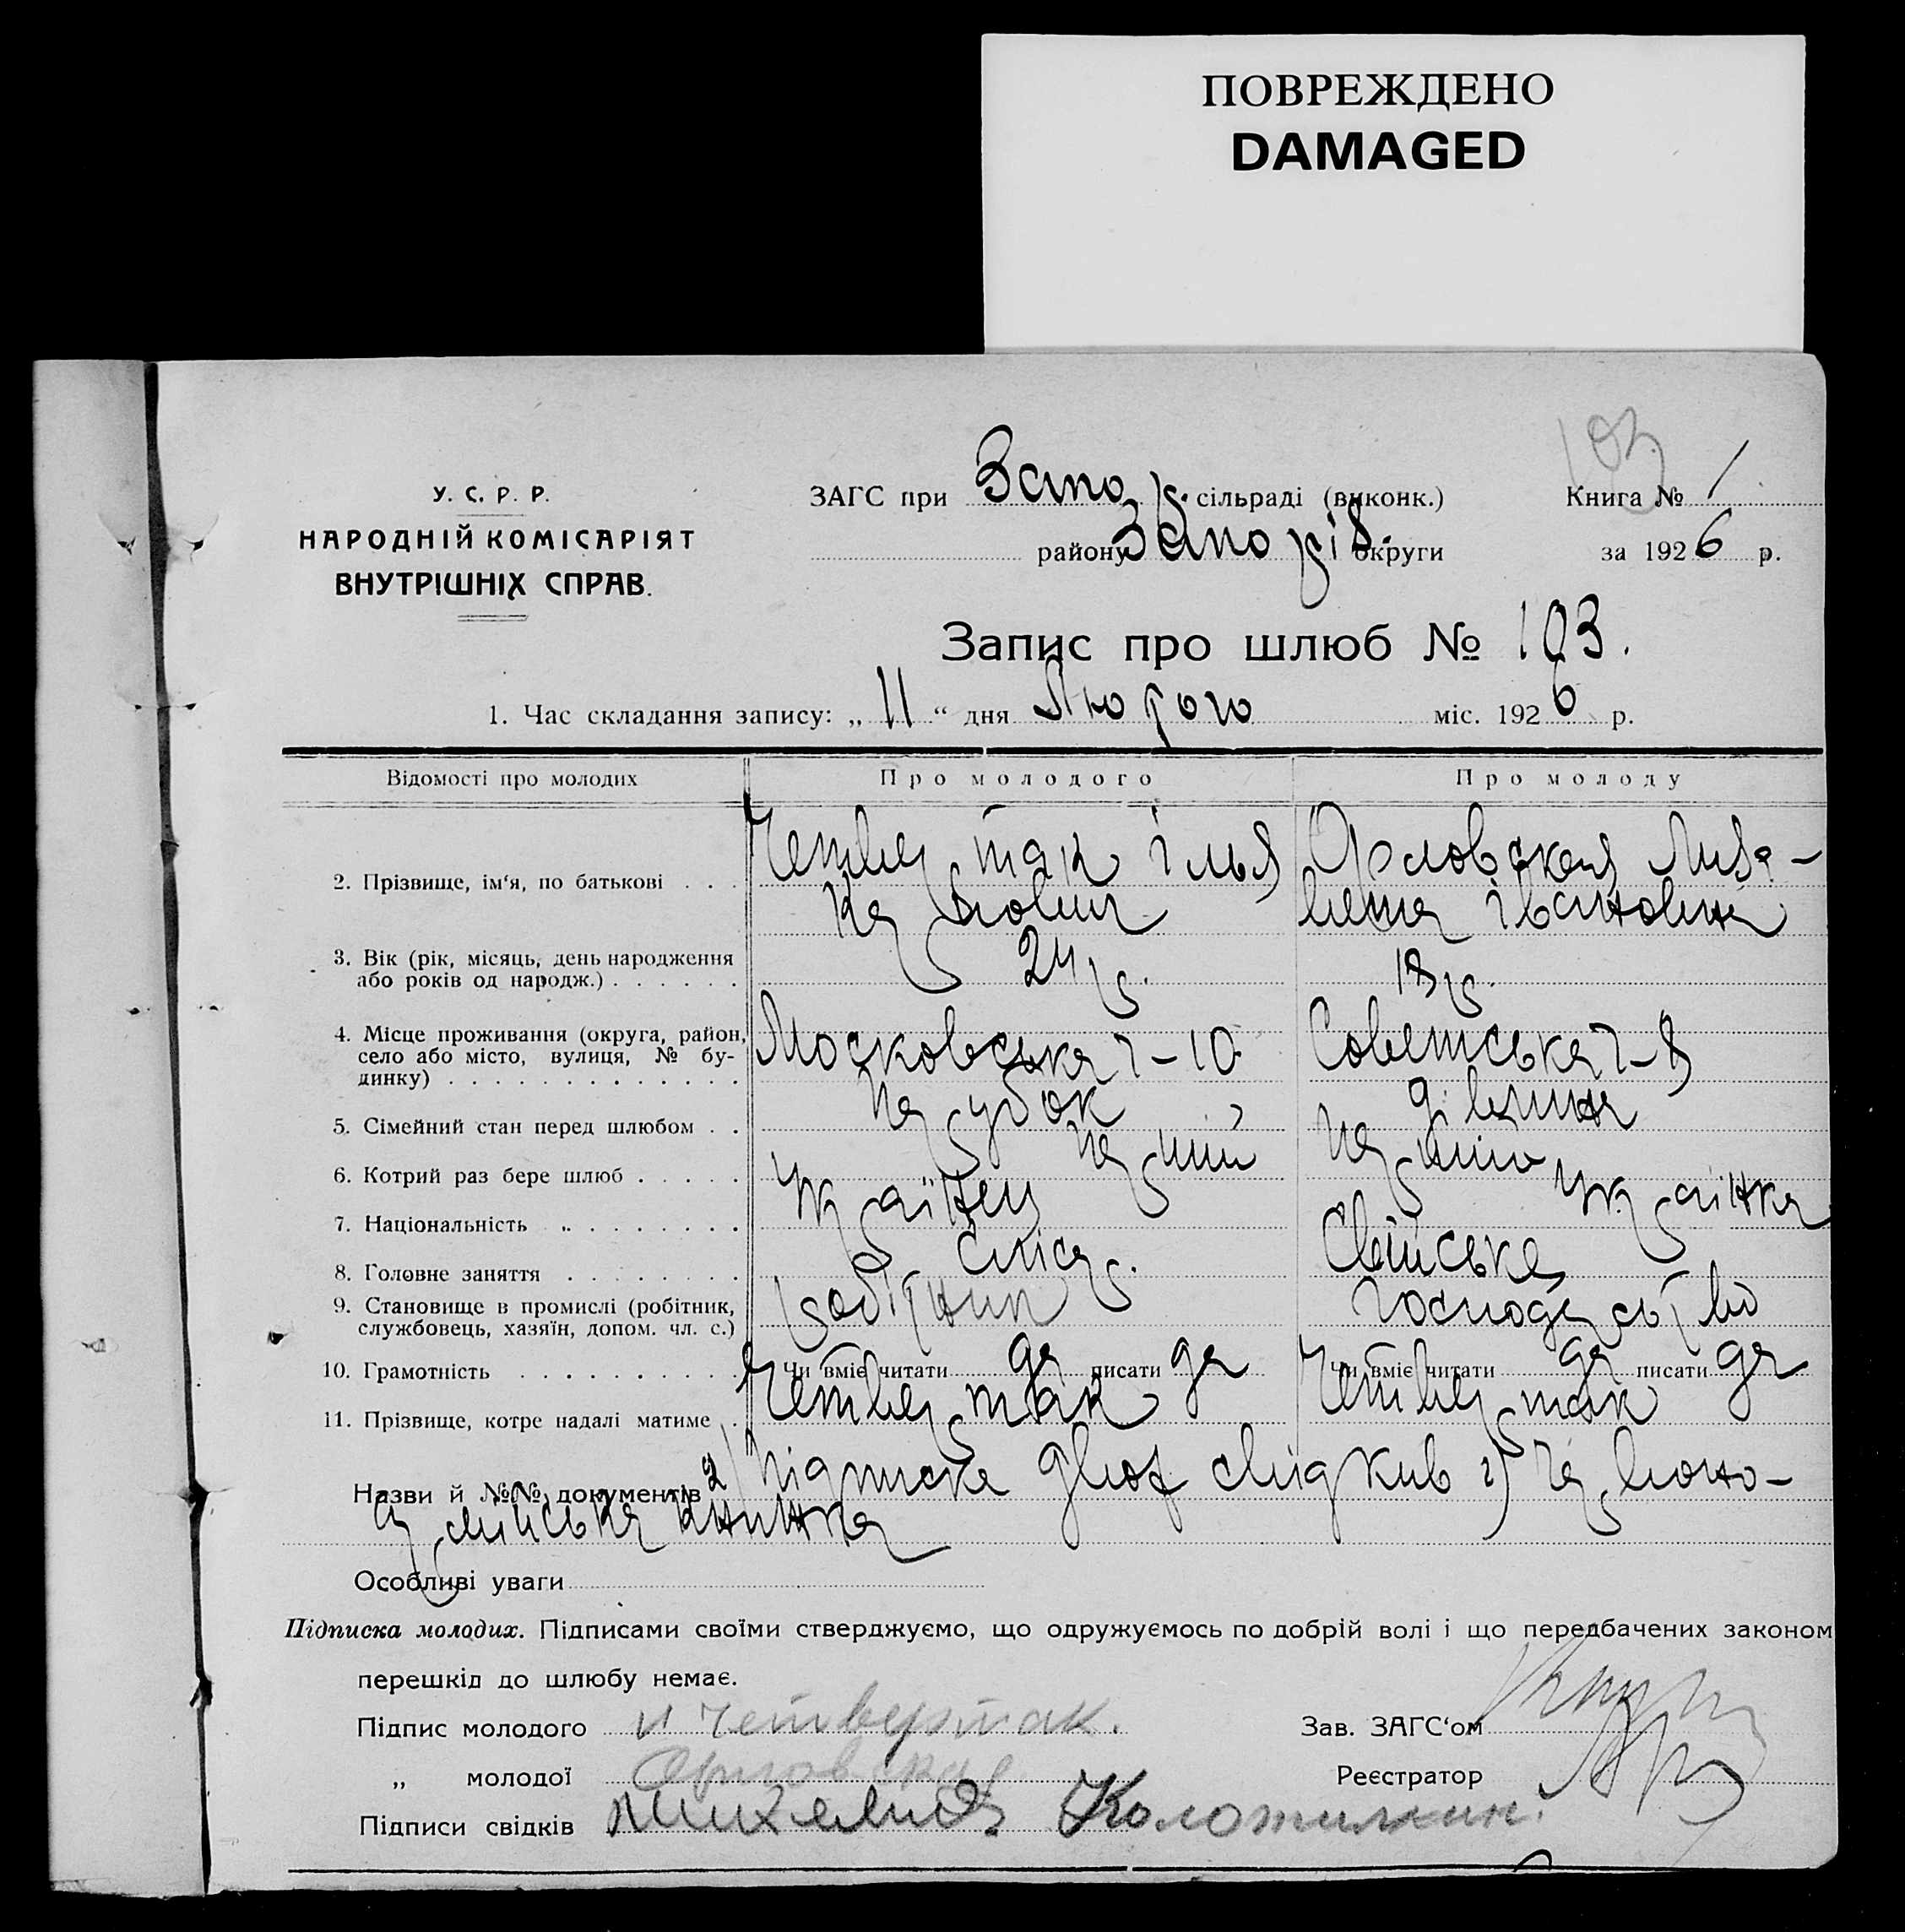 ПОВРЕЖДЕНО
DAMAGED
103
У. С. Р. Р.
НАРОДНІЙ КОМІСАРІЯТ
ВНУТРІШНІХ СПРАВ.
ЗАГС при Запор. сільраді (виконк.)
району Запоріз. округи
Книга № 1
за 1926 р.
Запис про шлюб № 103.
1. Час складання запису: „ 11 “ дня Лютого міс. 1926 р.
Відомості про молодих Про молодого Про молоду
2. Прізвище, ім‘я, по батькові . . . Четвертак Ілья Орловская Лиза-
Карпович вета Івановна
3. Вік (рік, місяць, день народження 24 р. 18 р.
або років од народж.) . . . . . .
4. Місце проживання (округа, район, Московська ч-10 Советська ч-8
село або місто, вулиця, № бу-
динку) . . . . . . . . . . . . .
5. Сімейний стан перед шлюбом . . парубок дівчина
6. Котрий раз бере шлюб . . . . . перший перший
7. Національність . . . . . . . . Українец Українка
8. Головне заняття . . . . . . . . слюсар. Свійське
9. Становище в промислі (робітник, робітник господарьство
службовець, хазяїн, допом. чл. с.)
10. Грамотність . . . . . . . . . . Чи вміє читати да писати да Чи вміє читати да писати да
11. Прізвище, котре надалі матиме . Четвертак Четвертак
Назви й №№ документів 2/ підписка двох свідків 2) червоно-
армійська книжка
Особливі уваги
Підписка молодих. Підписами своїми стверджуємо, що одружуємось по добрій волі і що передбачених законом
перешкід до шлюбу немає.
Підпис молодого И Четвертак. Зав. ЗАГС‘ом
„ молодої Орловская Реєстратор
Підписи свідків